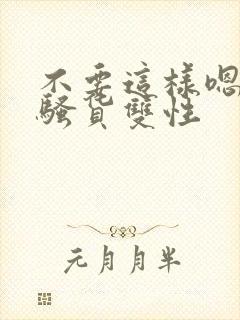 不要這樣嗯
騷貨雙性
元月月半